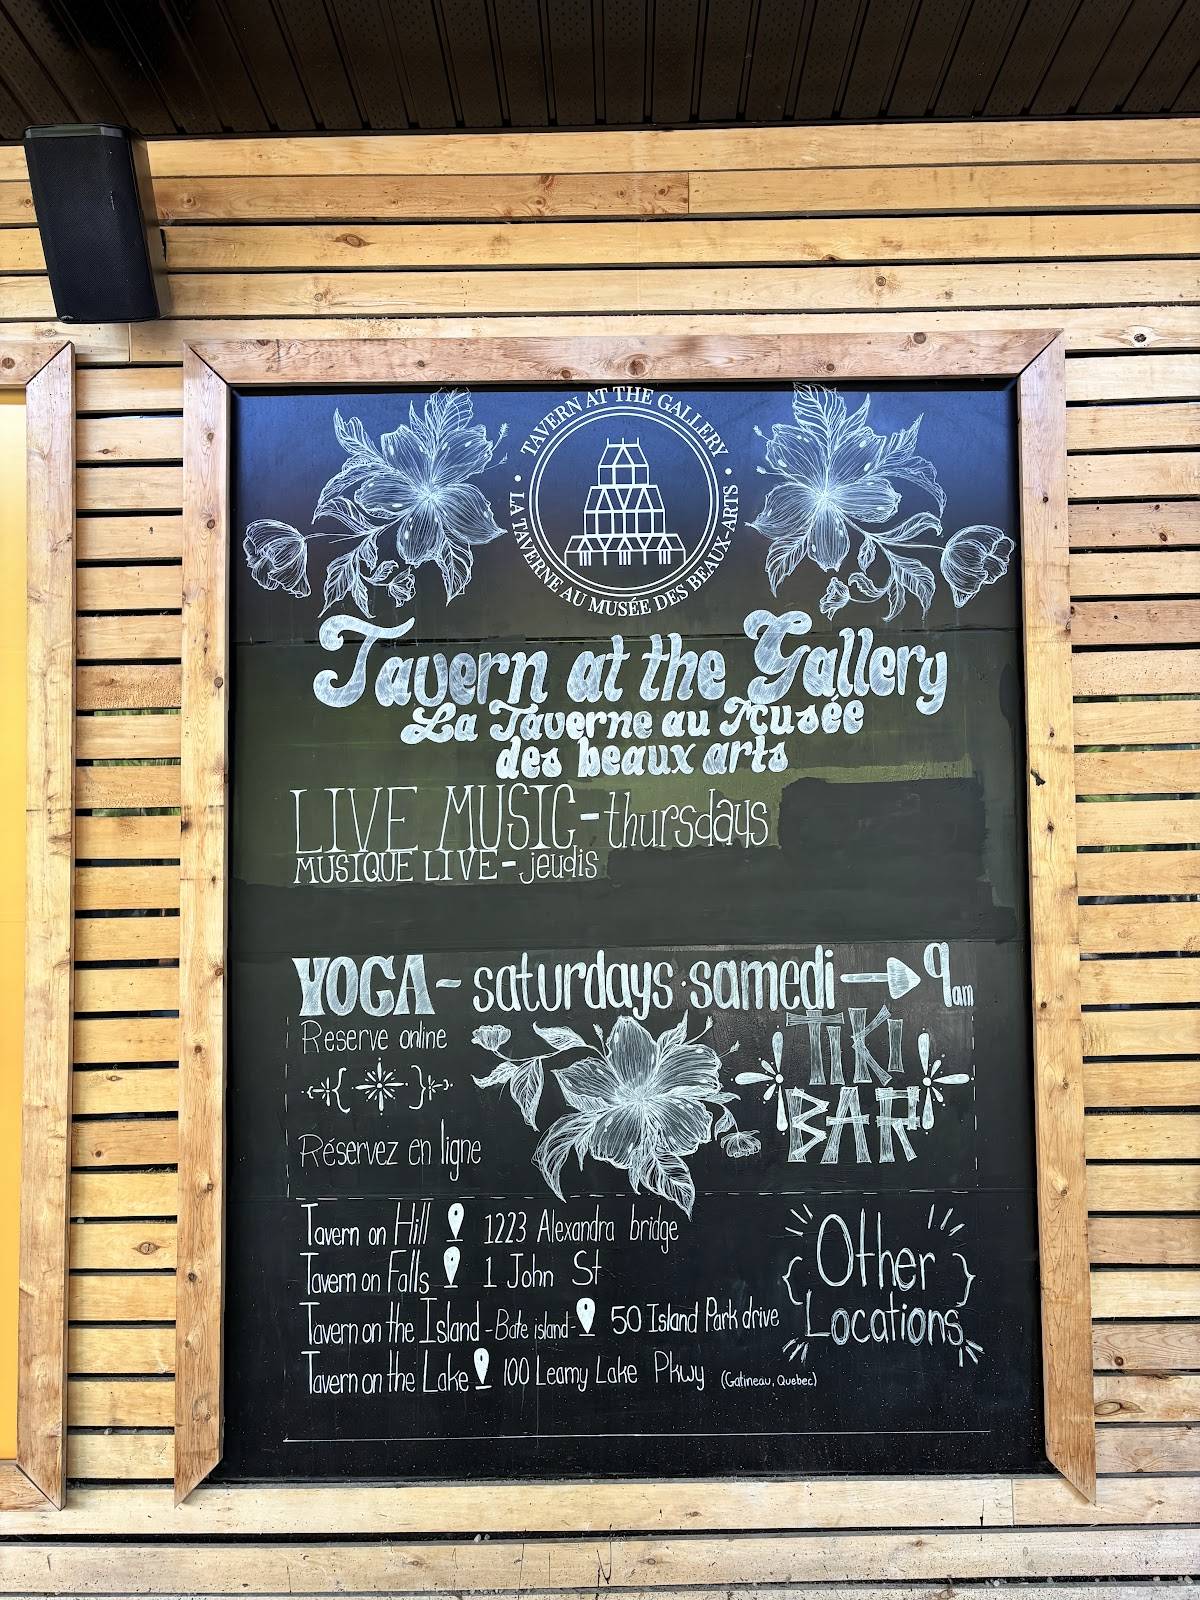 TAVERN AT THE GALLERY
LA TAVERNE AU MUSÉE DES BEAUX-ARTS
Tavern at the Gallery
La Taverne au Musée
des beaux arts
LIVE MUSIC - thursdays
MUSIQUE LIVE - jeudis
YOGA - saturdays · samedi → 9am
Reserve online
Réservez en ligne
TIKI
BAR
Tavern on Hill 1223 Alexandra bridge
Tavern on Falls 1 John St
Tavern on the Island - Bate island - 50 Island Park drive
Tavern on the Lake 100 Leamy Lake Pkwy (Gatineau, Quebec)
Other
Locations